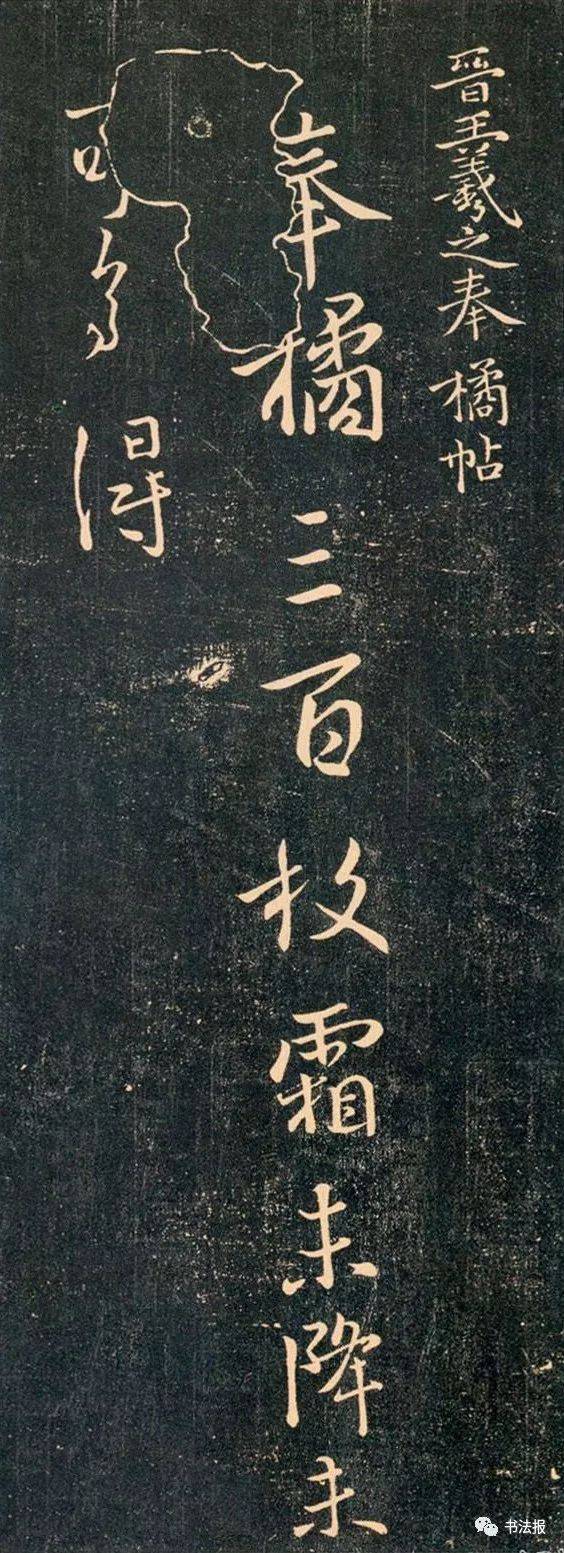 晉王羲之奉橘帖
奉橘三百枚霜未降未
可多得
书法报